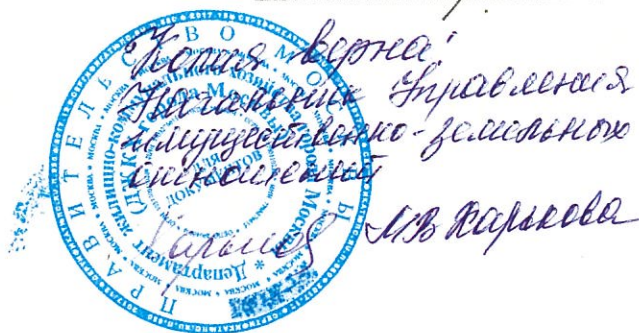 Копия верна:
Начальник Управления
имущественно-земельных
отношений
М.В. Харькова
ПРАВИТЕЛЬСТВО МОСКВЫ
* Департамент жилищно-коммунального хозяйства города Москвы
(ДЖКХ города Москвы)
ДЛЯ
ДОКУМЕНТОВ